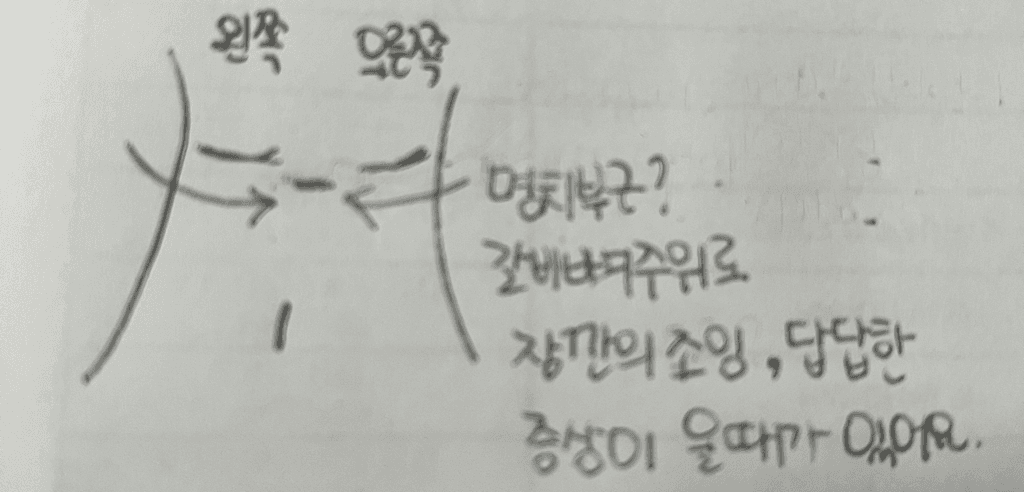 왼쪽 오른쪽
명치부근?
갈비뼈주위로
장깐의 조임, 답답한
증상이 올때가 있어요.